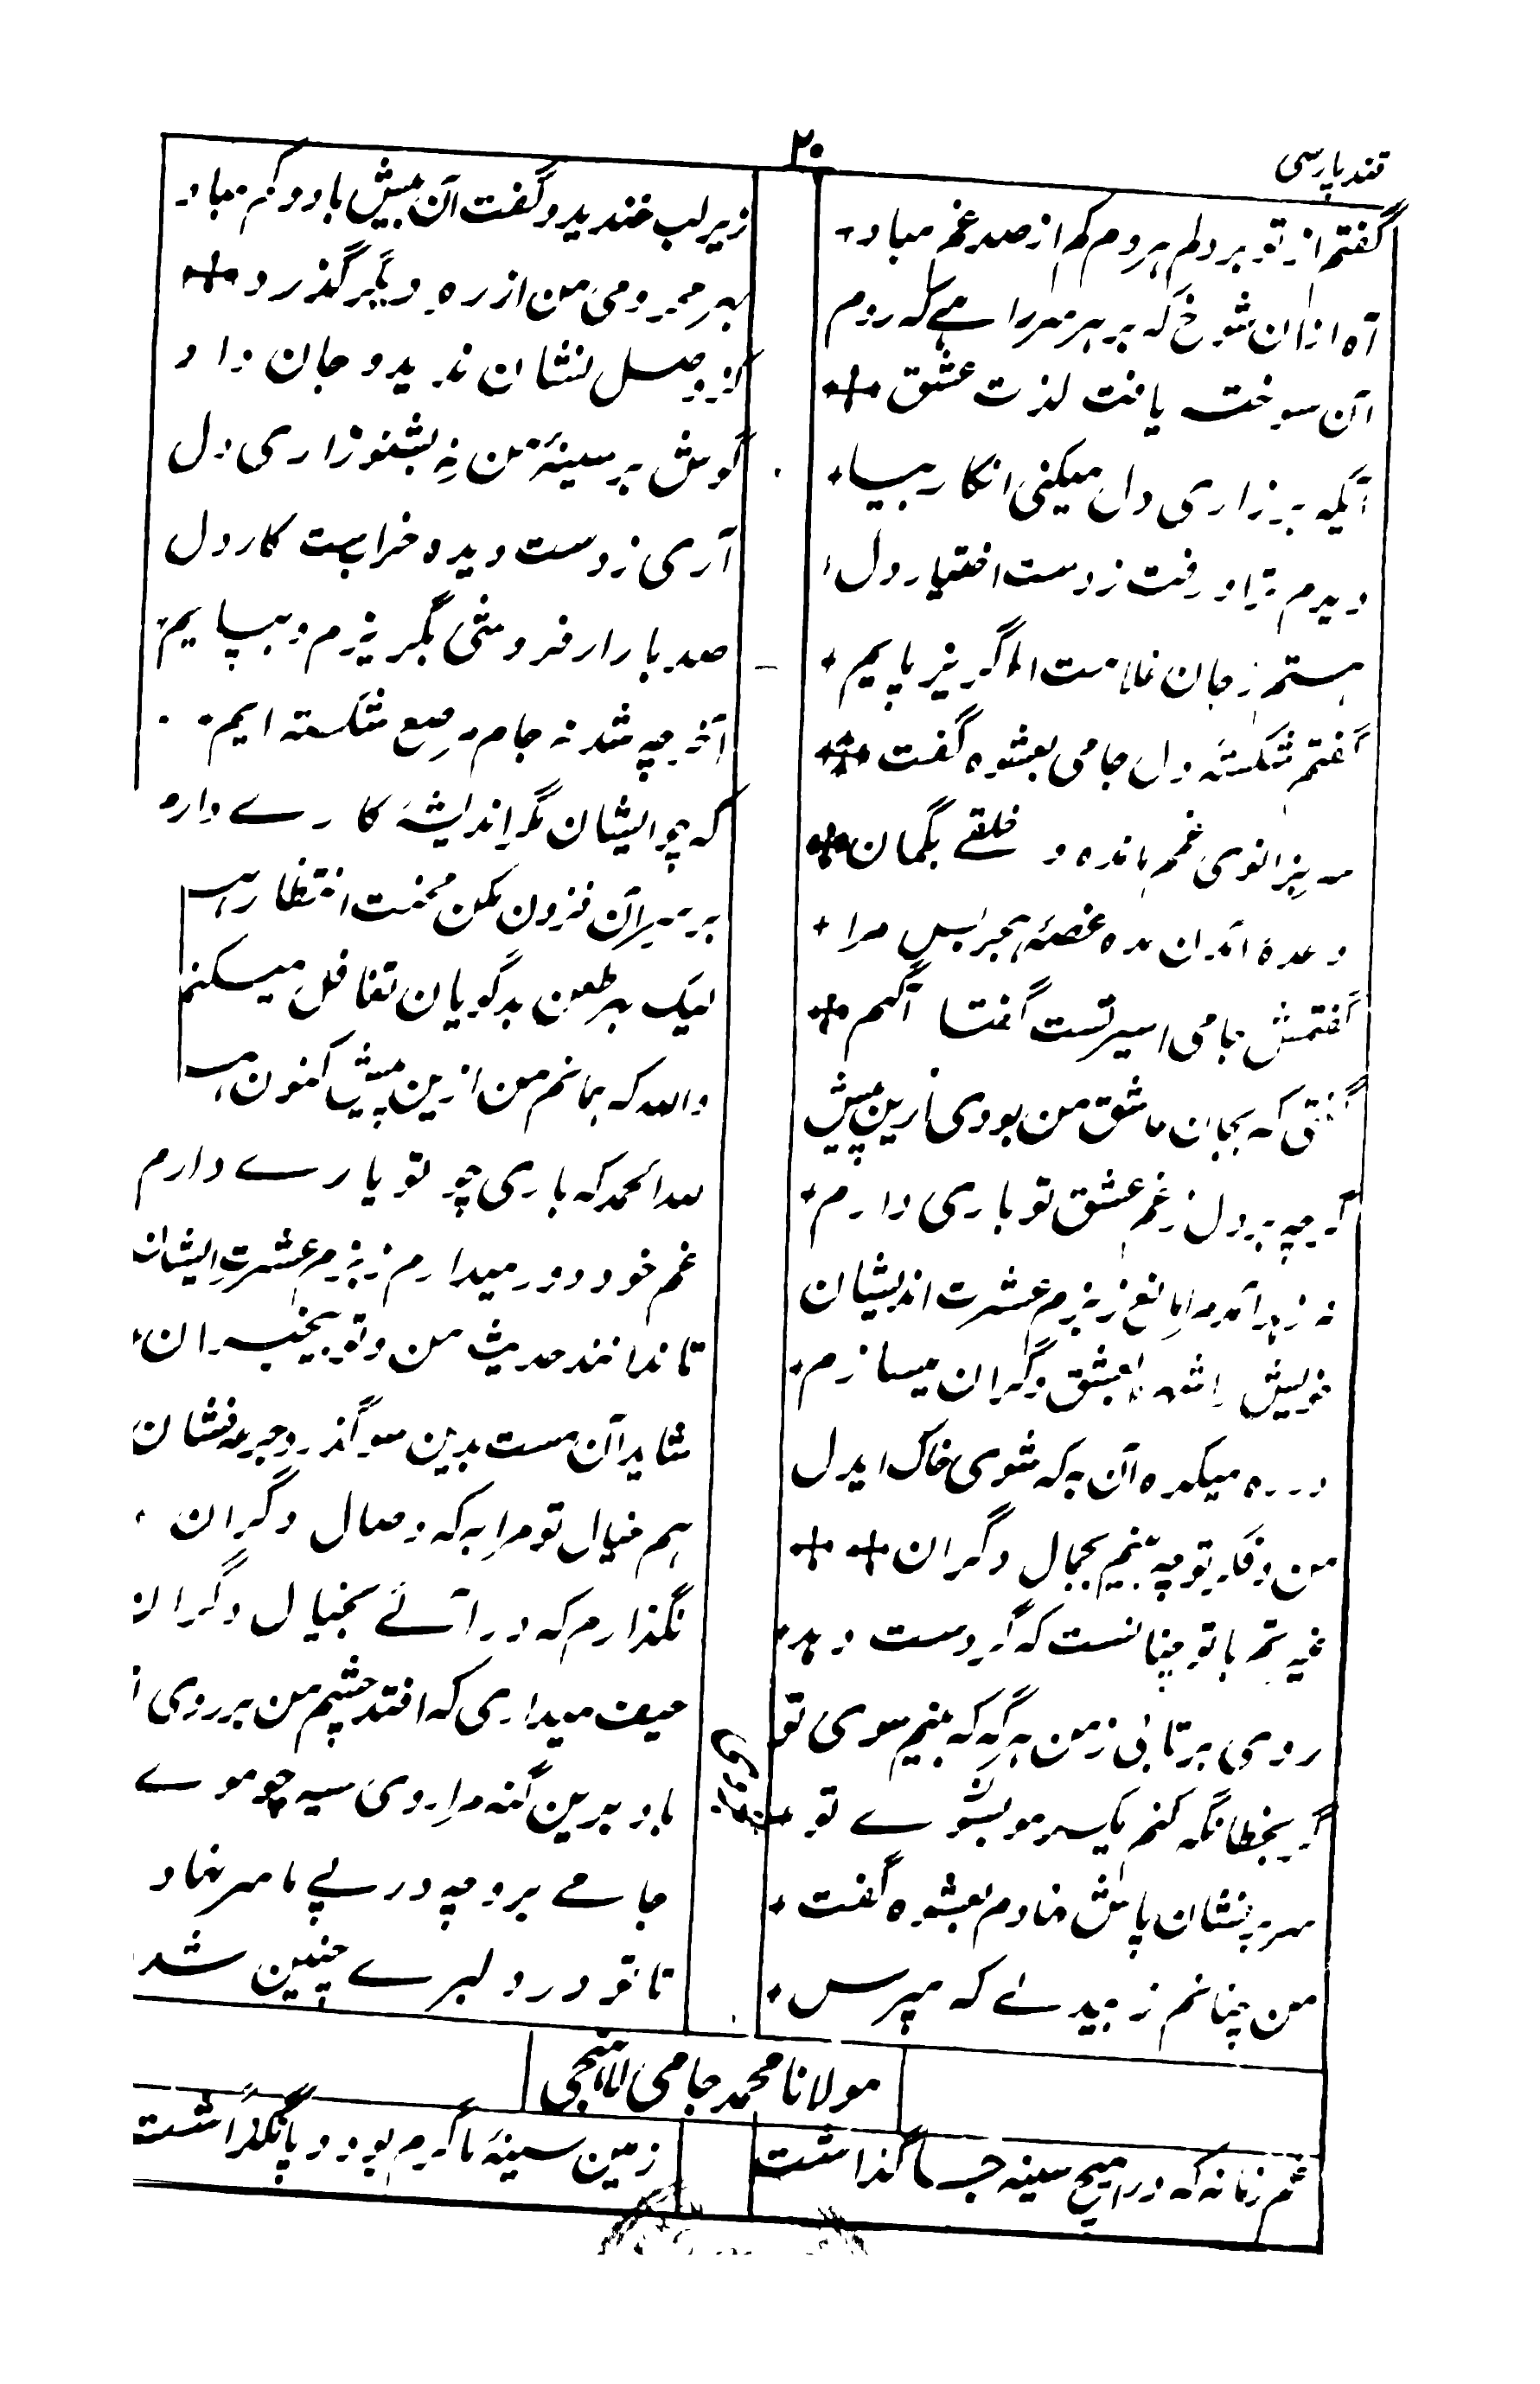 قند پارسی
۲۰
گفتم از تو بر دلم هر دم کم از صد غم مباد
زیر لب خندید و گفت آن بیش باد و کم مباد
آه ازان شوخ که بر هر سر راهے که روم
بهر محرومی من از ره دیگر گذرد
آن سوخته یافت لذت عشق
کز وصل نشان ندید و جان داد
آنکه بر زاری دل میکنی انکار بیا
گوش بر سینۀ من نه بشنو زاری دل
دیدم ترا و رفت ز دست اختیار دل
آری ز دست دیده خرابست کار دل
هستم ز جان غلامت اما گریز پایم
صد بار ار فروشی بگریزم و بیایم
گفتم شکستۀ دل جامی بعشوه گفت
آخر چه شد نه جام مرصع شکسته ایم
سر بزانوی غمم مانده و خلقے بگمان
که چو ایشان مگر اندیشۀ کارے دارم
وعدۀ آمدن مده غصۀ هجر بس مرا
بر سر آن فزون مکن محنت انتظار را
گفتمش جامی اسیر تست گفتا آگهم
لیک بهر طعن بدگویان تغافل میکنم
گفتی که بجان عاشق من بودی ازین پیش
والله که همانم من ازین پیش اکنون هم
گرچه بر دل ز غم عشق تو باری دارم
لله الحمد که باری چو تو یارے دارم
نه زهد آمد مرا مانع ز بزم عشرت اندیشان
غم خود دور میدارم ز بزم عشرت ایشان
خویش را شهره بعشق دگران میسازم
تا ندانند حدیث من و تو بیخبران
در ره میکده آن به که شوی خاک ایدل
شاید آن مست بدین سو گذرد جرعه فشان
من و فکر تو چه بینم بجمال دگران
هم خیال تو مرا به که وصال دگران
غیرتم با تو چنانست که گر دست دهد
نگذارم که در آئے بخیال دگران
روی بر تابی ز من هر گه که بینم سوی تو
حیف میداری که افتد چشم من بر روی
گر بخطا نگه کنم یکسر مو بسوے تو
باد بدین گنه مرا روی سیه چو موے
سر به نشان پاش نهادم بعشوه گفت
جامے برو چه در پے ما سر نهاد
من چنانم ز بیدلے که مپرس
تا تو در دلبرے چنین شد
مولانا محمد جامی
غم زمانه که در هیچ سینه جا نگذاشت
زمین سینۀ ما گرم بود و پا نگذاشت